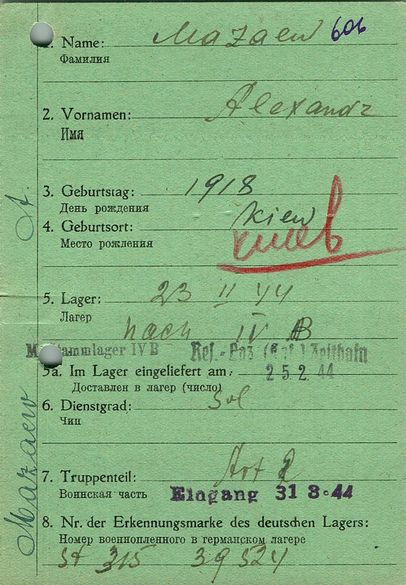 1. Name: Mazaew 606
Фамилия
2. Vornamen: Alexandr
Имя
3. Geburtstag: 1918
День рождения
4. Geburtsort: Kiew
Место рождения Киев
5. Lager: 23 II 44
Лагерь
nach IV B
Stammlager IV B Res.-Laz. Zeithain
5a. Im Lager eingeliefert am: 25.2.44
Доставлен в лагер (число)
6. Dienstgrad: Sol
Чин
7. Truppenteil: Art
Воинская часть Eingang 31.3.44
8. Nr. der Erkennungsmarke des deutschen Lagers:
Номер военнопленного в германском лагере
St 315 39524
Mazaew A.